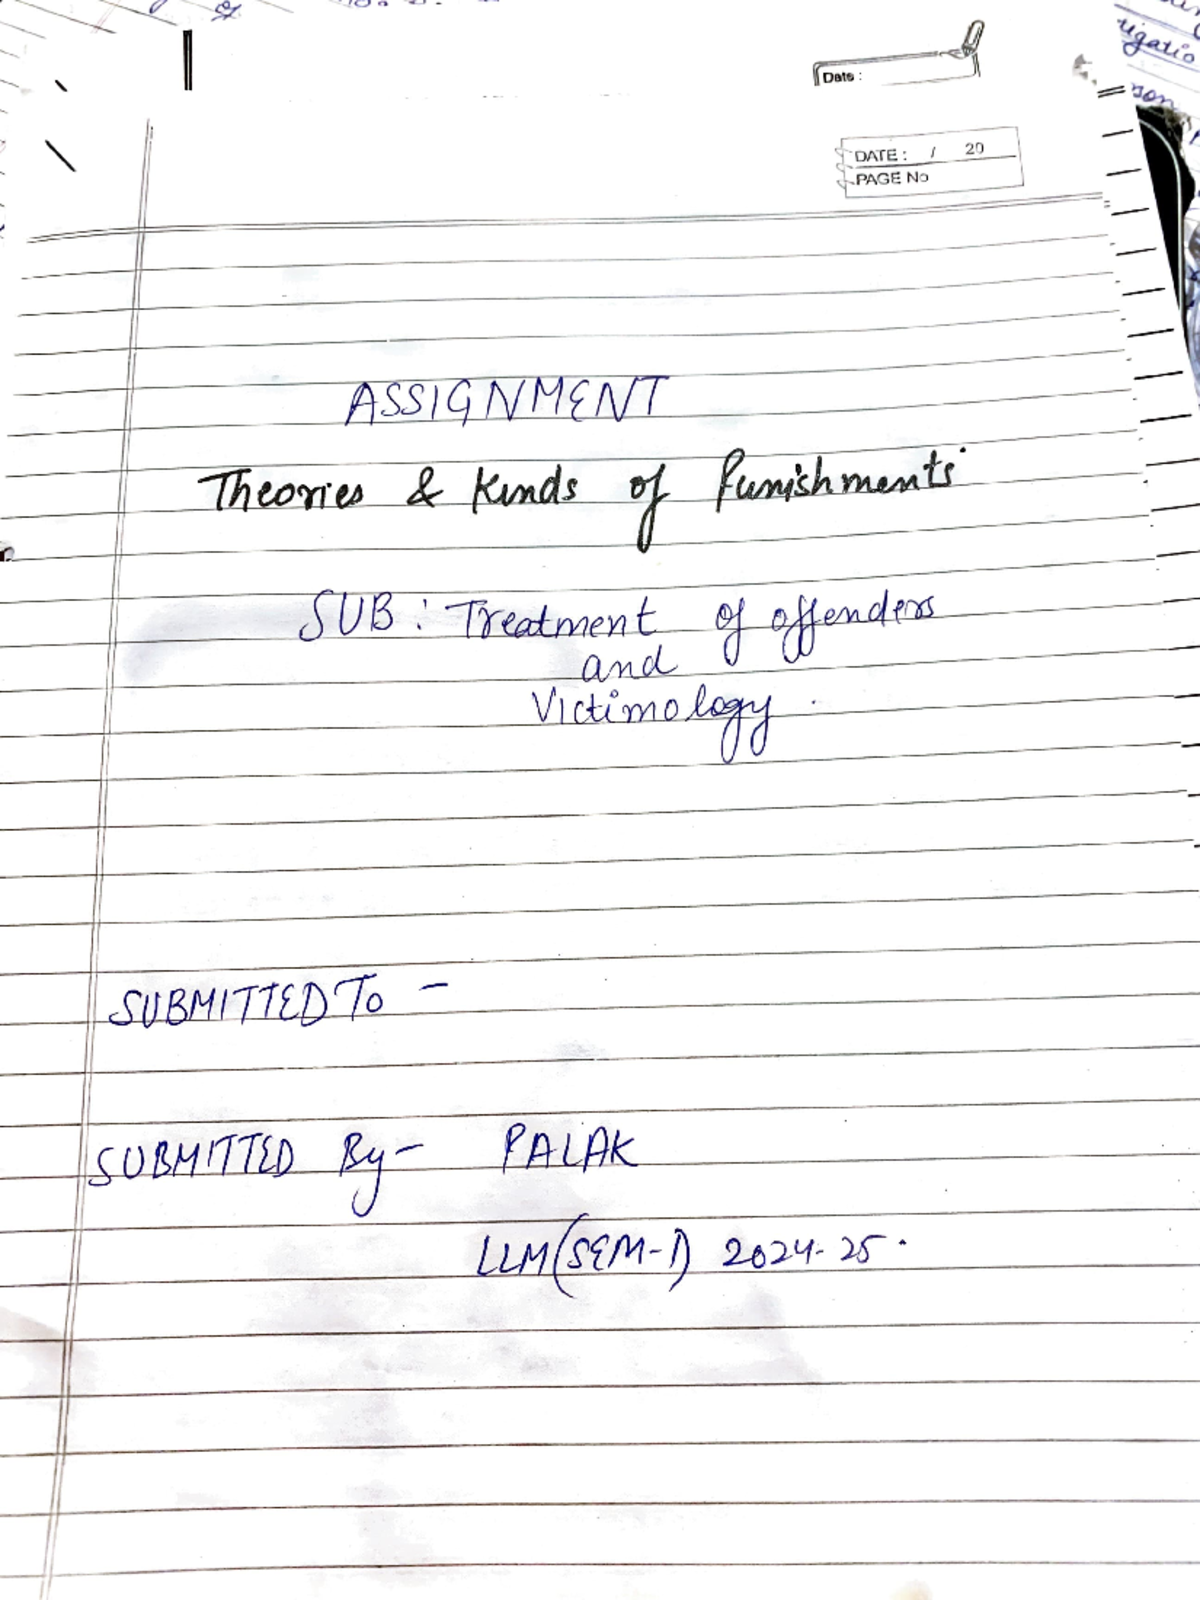 Date :
DATE : / 20
PAGE No
tigatio
son
ASSIGNMENT
Theories & Kinds of Punishments
SUB : Treatment of offenders
and
Victimology
SUBMITTED To -
SUBMITTED By - PALAK
LLM (SEM-I) 2024-25.